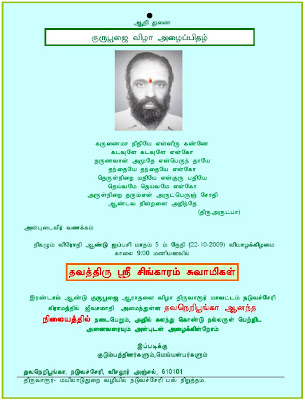 ஆதி துணை
குருபூஜை விழா அழைப்பிதழ்
கருணைமா நிதியே என்னிரு கண்ணே
கடவுளே கடவுளே என்கோ
தருணவான் அமுதே என்பெருந் தாயே
தந்தையே தந்தையே என்கோ
தெருள்நிறை மதியே என்குரு பதியே
தெய்வமே தெய்வமே என்கோ
அருள்நிறை தரும்என் அருட்பெருஞ் சோதி
ஆண்டவ நின்றனை அறிந்தே
(திருஅருட்பா)
அன்புடையீர் வணக்கம்.
நிகழும் விரோதி ஆண்டு ஐப்பசி மாதம் 5 ம் தேதி (22-10-2009) வியாழக்கிழமை
காலை 9:00 மணியளவில்
தவத்திரு ஸ்ரீ சிங்காரம் சுவாமிகள்
இரண்டாம் ஆண்டு குருபூஜை ஆராதனை விழா திருவாரூர் மாவட்டம் நடுவச்சேரி
கிராமத்தில் ஜீவசமாதி அமைந்துள்ள தவநெறிபூங்கா ஆனந்த
நிலையத்தில் நடைபெறும், அதில் கலந்து கொண்டு நல்லருள் பெற்றிட
அனைவரையும் அன்புடன் அழைக்கின்றோம்
இப்படிக்கு
குடும்பத்தினர்களும்,மெய்யன்பர்களும்
தவநெறிபூங்கா, நடுவச்சேரி, விசலூர் அஞ்சல், 610101
திருவாரூர்- மயிலாடுதுறை வழியில் நடுவச்சேரி பஸ் நிறுத்தம்.